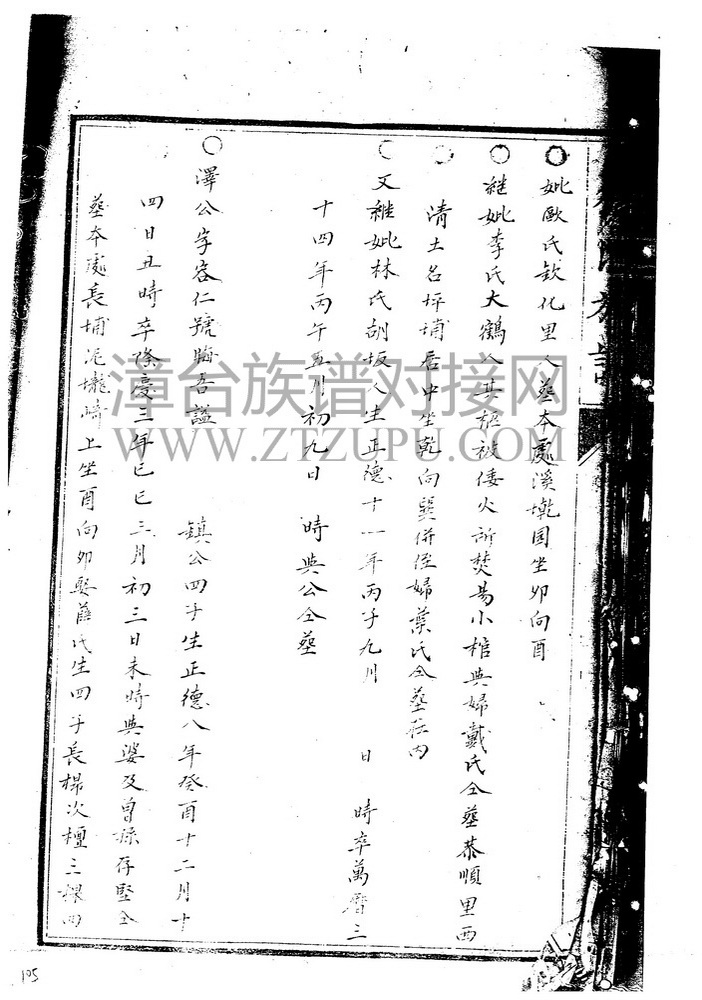 妣歐氏欽化里人葬本處溪墘園坐卯向酉
繼妣李氏大鶴人其柩被倭火所焚易小棺與婦戴氏仝葬恭順里西
清土名坪埔居中坐乾向巽併侄婦葉氏仝葬在內
又繼妣林氏胡坂人生正德十一年丙子九月 日 時卒萬曆三
十四年丙午五月初九日 時與公仝葬
澤公字容仁號晦吾謚
鎮公四子生正德八年癸酉十二月十
四日丑時卒隆慶三年己巳三月初三日未時與婆及曾孫存堅仝
葬本處長埔泥壠崎上坐酉向卯娶薛氏生四子長楊次檀三 四
漳台族谱对接网
WWW.ZTZUPU.COM
105